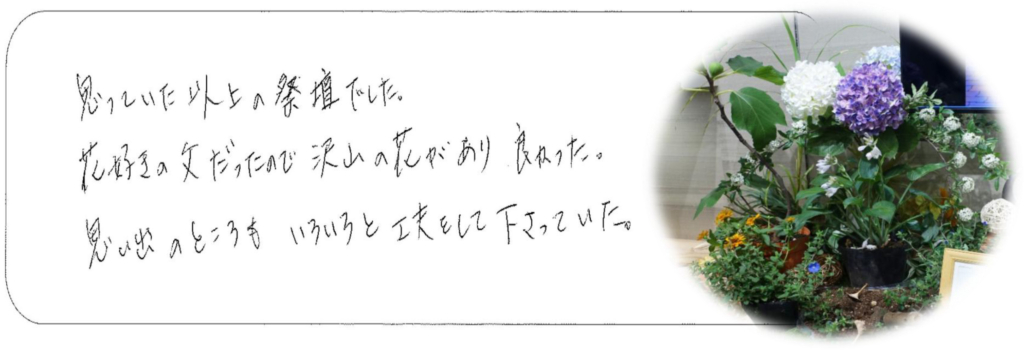 思っていた以上の祭壇でした。
花好きの父だったので沢山の花があり良かった。
思い出のところもいろいろと工夫をして下さっていた。